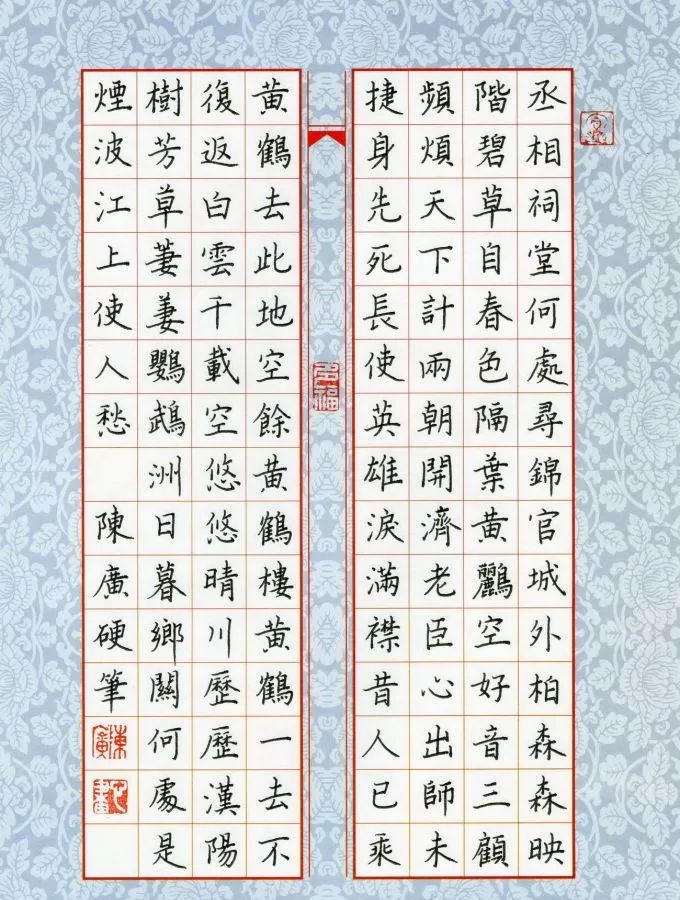 丞相祠堂何處尋錦官城外柏森森映
階碧草自春色隔葉黄鸝空好音三顧
頻煩天下計兩朝開濟老臣心出師未
捷身先死長使英雄淚滿襟昔人已乘
黄鶴去此地空餘黄鶴樓黄鶴一去不
復返白雲千載空悠悠晴川歷歷漢陽
樹芳草萋萋鸚鵡洲日暮鄉關何處是
煙波江上使人愁 陳廣硬筆
陳廣